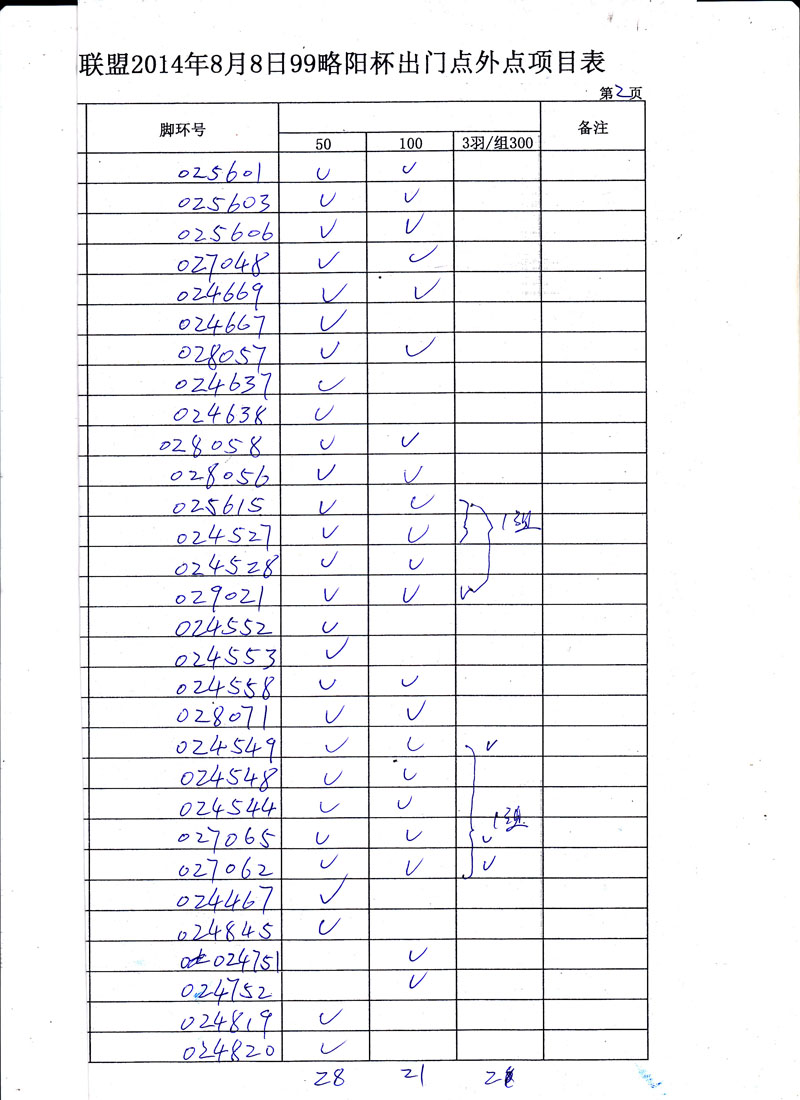 联盟2014年8月8日99略阳杯出门点外点项目表
第2页
脚环号 50 100 3羽/组300 备注
025601 ✓ ✓
025603 ✓ ✓
025606 ✓ ✓
027048 ✓ ✓
024669 ✓ ✓
024667 ✓
028057 ✓ ✓
024637 ✓
024638 ✓
028058 ✓ ✓
028056 ✓ ✓
025615 ✓ ✓
024527 ✓ ✓ 1组
024528 ✓ ✓
029021 ✓ ✓ ✓
024552 ✓
024553 ✓
024558 ✓ ✓
028071 ✓ ✓
024549 ✓ ✓ ✓
024548 ✓ ✓
024544 ✓ ✓ 1组
027065 ✓ ✓ ✓
027062 ✓ ✓ ✓
024467 ✓
024845 ✓
024751 ✓
024752 ✓
024819 ✓
024820 ✓
28 21 2